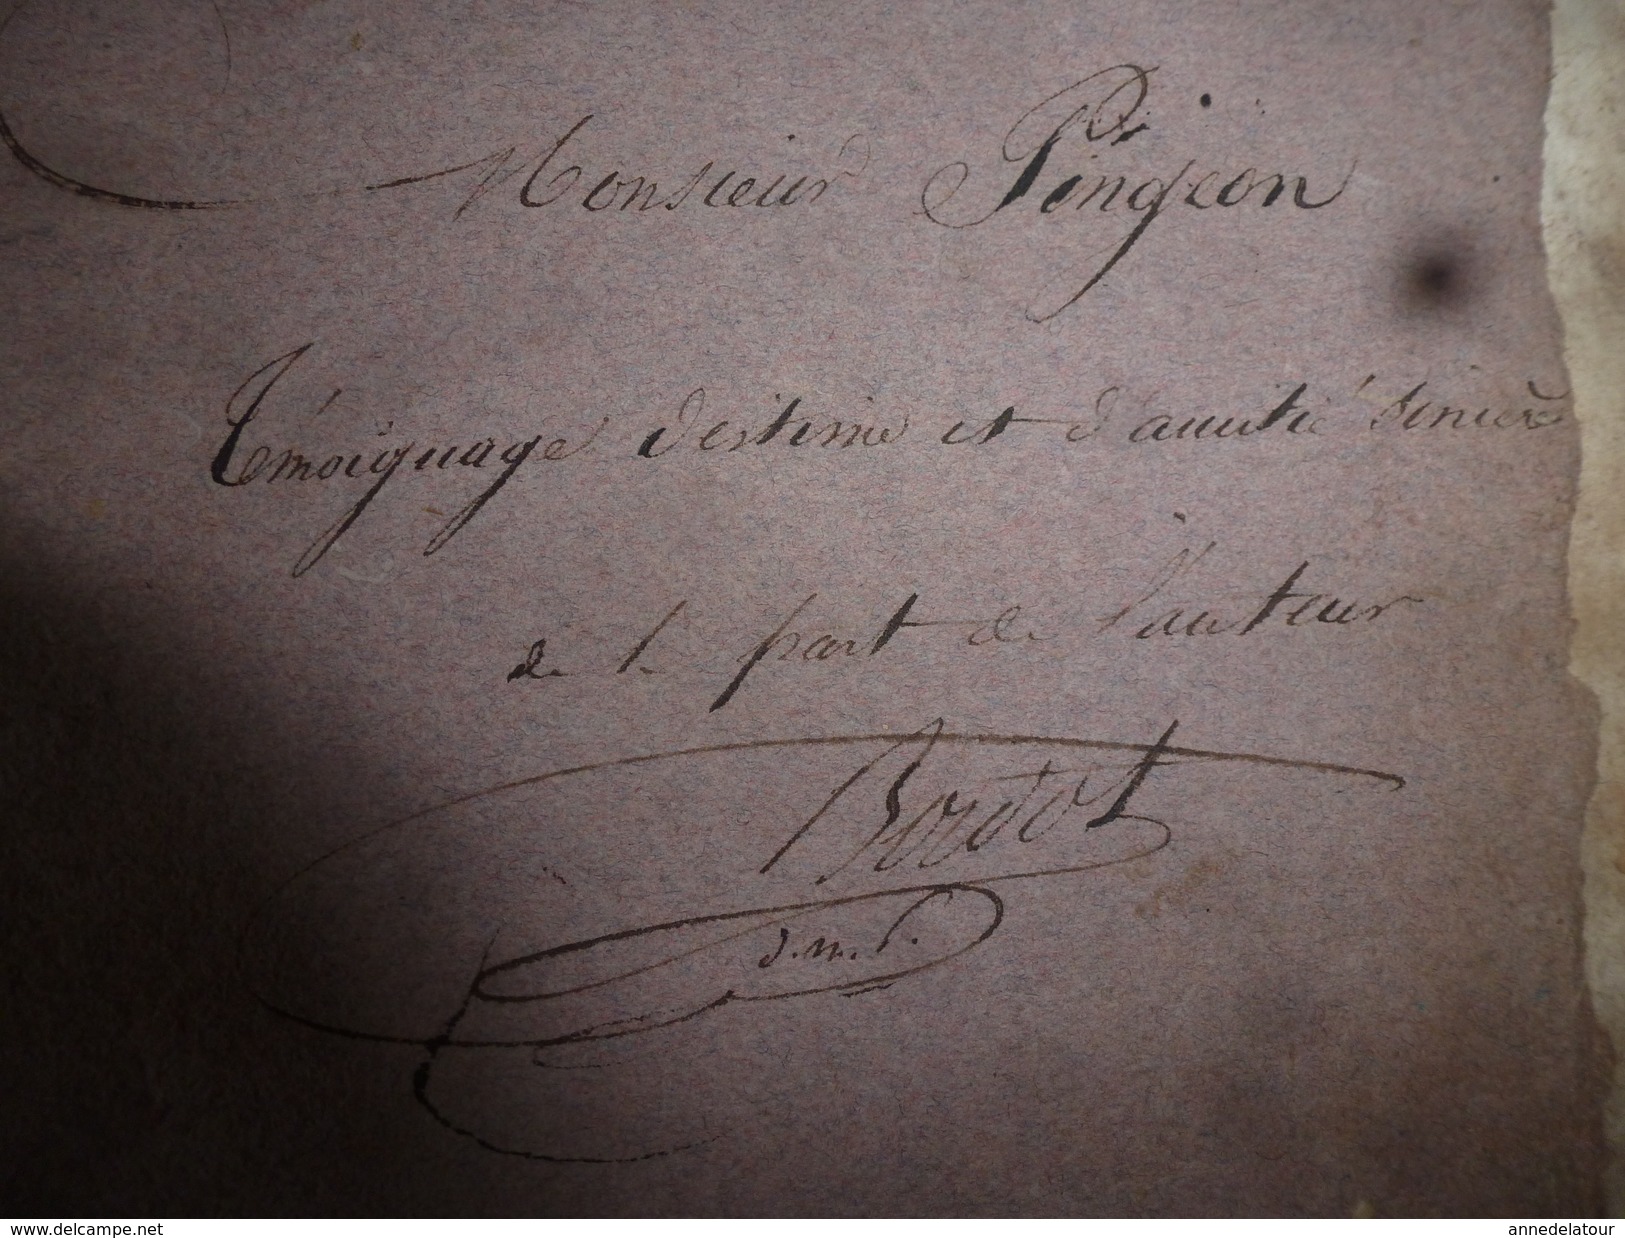 Monsieur Pingeon
Témoignage d'estime et d'amitié sincère
de la part de l'auteur
Bordot
d.m.p.
www.delcampe.net
annedelatour